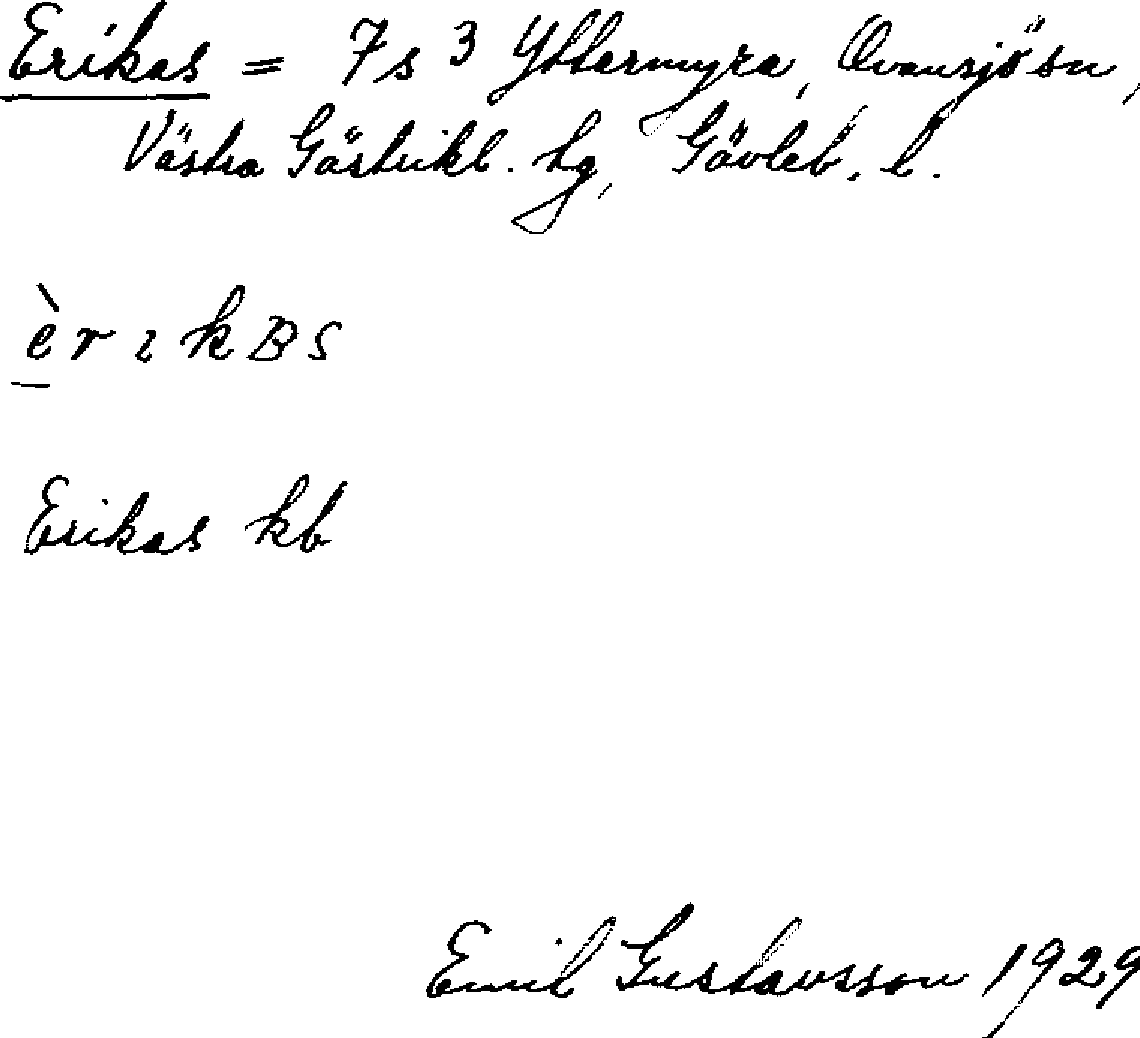 Erikas = 7 s 3 Yttermyra, Ovansjö sn,
Västra Gästrikl. hg, Gävleb. l.
èrɩkʙs
Erikas kb
Emil Gustavsson 1929